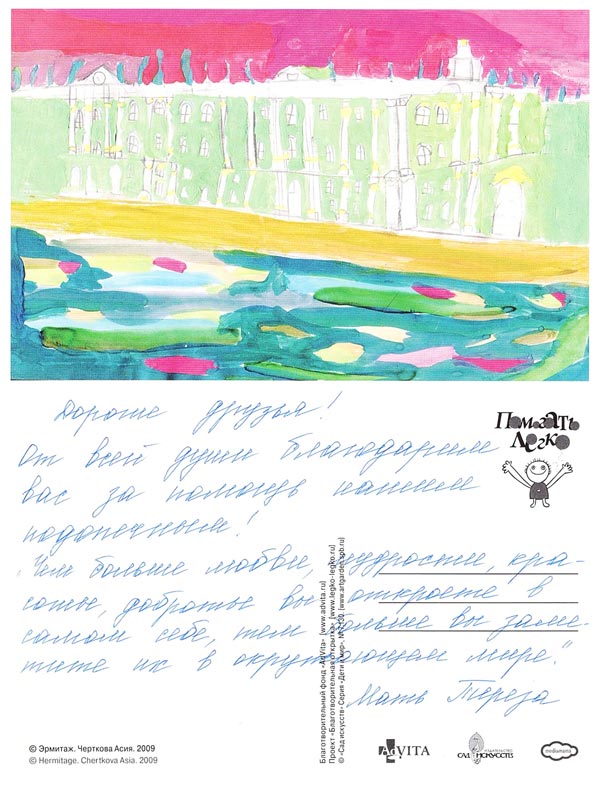 Дорогие друзья!
От всей души благодарим
вас за помощь нашим
подопечным!
"Чем больше любви, мудрости, кра-
соты, доброты вы откроете в
самом себе, тем больше вы заме-
тите их в окружающем мире".
Мать Тереза
Помогать
Легко
Благотворительный фонд «AdVita» [www.advita.ru]
Проект «Благотворительная открытка» [www.legko-legko.ru]
© «Сад искусств» Серия «Дети и мир».
© Эрмитаж. Черткова Асия. 2009
© Hermitage. Chertkova Asia. 2009
AdVITA
САД ИЗДАТЕЛЬСТВО ИСКУССТВ
mediamama